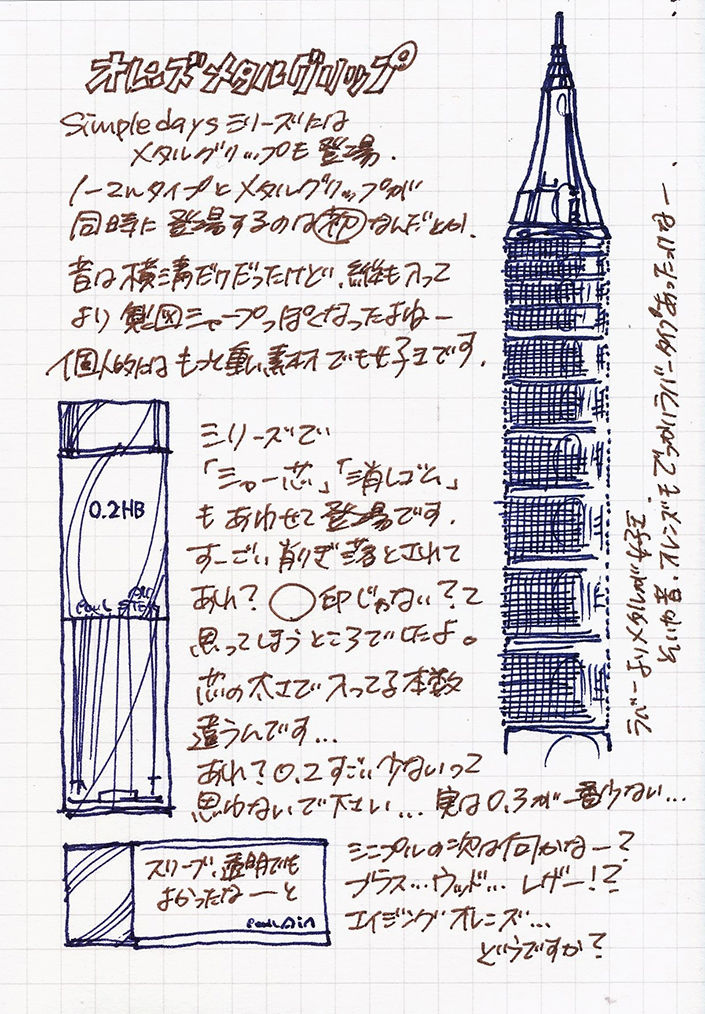 オレンズメタルグリップ
Simple daysシリーズには
メタルグリップも登場.
ノーマルタイプとメタルグリップが
同時に登場するのは初なんだとか.
昔は横溝だけだったけど、縦も入って
より製図シャープっぽくなったよねー
個人的にはもっと重い素材でも好きです.
シリーズで
「シャー芯」「消しゴム」
もあわせて登場です.
すーごい削ぎ落とされて
あれ?〇印じゃない?って
思ってしまうところでしたよ。
芯の太さで入ってる本数
違うんです...
あれ?0.2すごい少ないって
思わないで下さい... 実は0.3が一番少ない...
0.2HB
スリーブ、透明でも
よかったなーと
PaulAiA
シンプルの次は何かなー?
ブラス...ウッド... レザー!?
エイジングオレンズ...
どうですか?